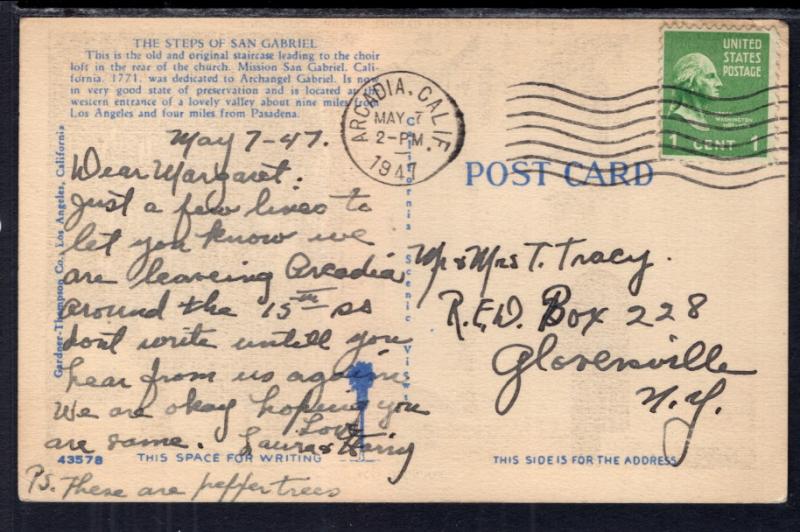 THE STEPS OF SAN GABRIEL
This is the old and original staircase leading to the choir
loft in the rear of the church. Mission San Gabriel, Cali-
fornia, 1771, was dedicated to Archangel Gabriel. Is now
in very good state of preservation and is located at the
western entrance of a lovely valley about nine miles from
Los Angeles and four miles from Pasadena.
May 7-47.
Dear Margaret.
Just a few lines to
let you know we
are leaveing Arcadia
around the 15th so
dont write untill you
hear from us again
We are okay hoping you
are same. Love
Laura & Harry
43578 THIS SPACE FOR WRITING
PS. These are peffer trees
Gardner-Thompson Co., Los Angeles, California
California Scenic Views
ARCADIA, CALIF.
MAY 7
2-PM
1947
UNITED
STATES
POSTAGE
WASHINGTON
1 CENT 1
POST CARD
Mr & Mrs T. Tracy.
R.F.D. Box 228
Gloversville
N.Y.
THIS SIDE IS FOR THE ADDRESS